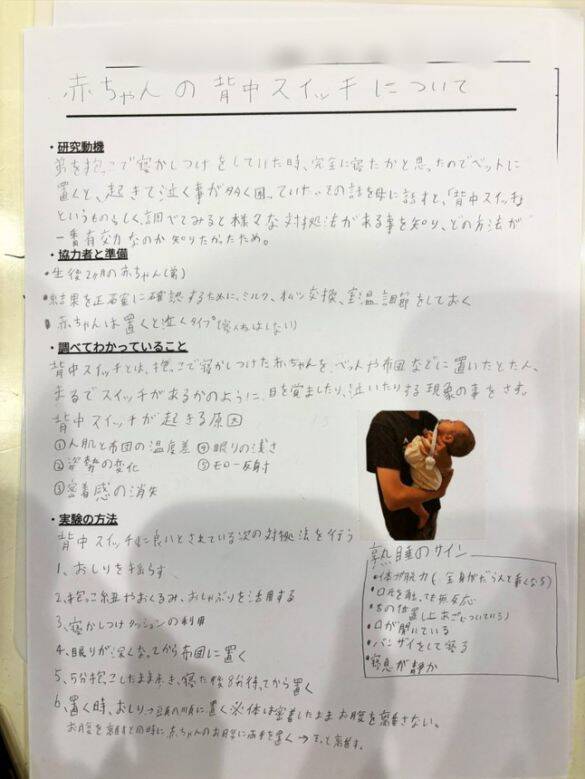 赤ちゃんの背中スイッチについて
・研究動機
弟を抱っこで寝かしつけをしていた時、完全に寝たかと思ったのでベットに
置くと、起きて泣く事が多く困っていた。その話を母に話すと、「背中スイッチ」
というものらしく調べてみると様々な対処法がある事を知り、どの方法が
一番有効なのか知りたかったため。
・協力者と準備
・生後2ヶ月の赤ちゃん(弟)
・結果を正確に確認するために、ミルク、オムツ交換、室温調節をしておく
・赤ちゃんは置くと泣くタイプ
・調べてわかっていること
背中スイッチとは、抱っこで寝かしつけた赤ちゃんを、ベットや布団などに置いたとたん、
まるでスイッチがあるかのように、目を覚ましたり、泣いたりする現象の事をさす。
背中スイッチが起きる原因
①人肌と布団の温度差 ④眠りの浅さ
②姿勢の変化 ⑤モロー反射
③密着感の消失
・実験の方法
背中スイッチに良いとされている次の対処法を行う
1、おしりを揺らす
2、抱っこ紐やおくるみ、おしゃぶりを活用する
3、寝かしつけクッションの利用
4、眠りが深くなってから布団に置く
5、5分抱っこしたまま歩き、寝た後8分待ってから置く
6、置く時、おしり→頭の順に置く※体は密着したままお腹を離さない。
お腹を離すと同時に赤ちゃんのお腹に両手を置く→そっと離す。
熟睡のサイン
・体が脱力(全身がだらんと重くなる)
・口元を触っても無反応
・舌の位置(上あごについている)
・口が開いている
・バンザイをして寝る
・寝息が静か